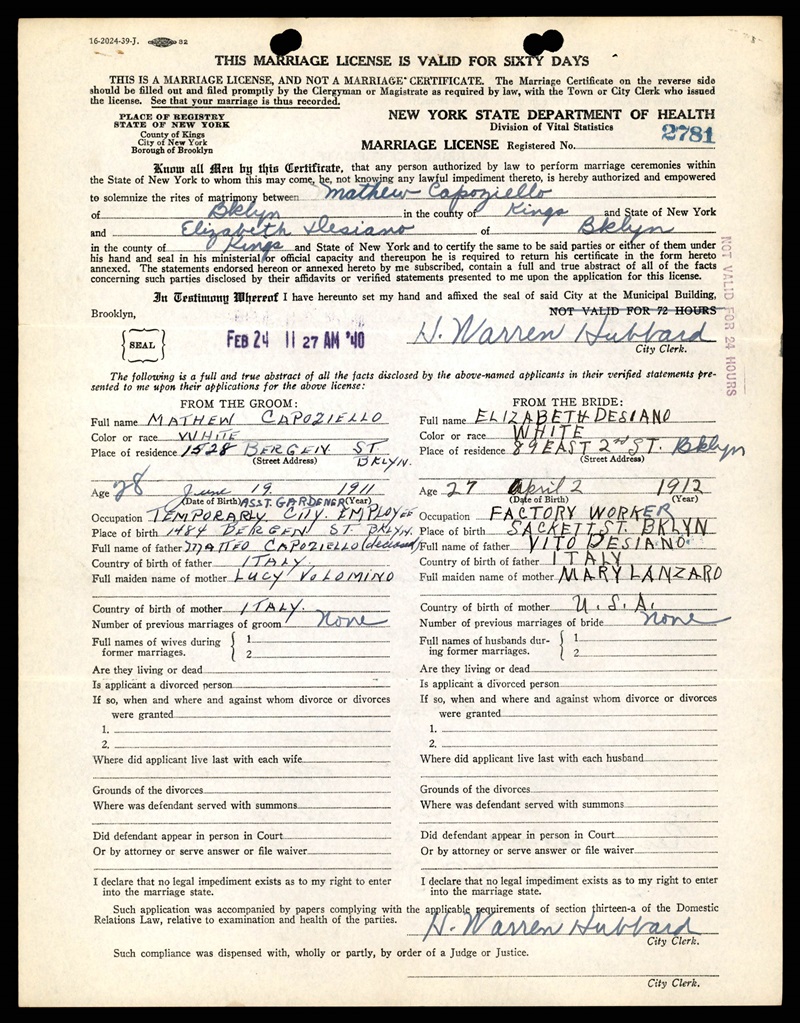 16-2024-39-J. 82
THIS MARRIAGE LICENSE IS VALID FOR SIXTY DAYS
THIS IS A MARRIAGE LICENSE, AND NOT A MARRIAGE CERTIFICATE. The Marriage Certificate on the reverse side
should be filled out and filed promptly by the Clergyman or Magistrate as required by law, with the Town or City Clerk who issued
the license. See that your marriage is thus recorded.
PLACE OF REGISTRY
STATE OF NEW YORK
County of Kings
City of New York
Borough of Brooklyn
NEW YORK STATE DEPARTMENT OF HEALTH
Division of Vital Statistics
MARRIAGE LICENSE Registered No. 2781
Know all Men by this Certificate, that any person authorized by law to perform marriage ceremonies within
the State of New York to whom this may come, he, not knowing any lawful impediment thereto, is hereby authorized and empowered
to solemnize the rites of matrimony between Mathew Capoziello
of Bklyn in the county of Kings and State of New York
and Elizabeth Desiano of Bklyn
in the county of Kings and State of New York and to certify the same to be said parties or either of them under
his hand and seal in his ministerial or official capacity and thereupon he is required to return his certificate in the form hereto
annexed. The statements endorsed hereon or annexed hereto by me subscribed, contain a full and true abstract of all of the facts
concerning such parties disclosed by their affidavits or verified statements presented to me upon the application for this license.
In Testimony Whereof I have hereunto set my hand and affixed the seal of said City at the Municipal Building,
Brooklyn, NOT VALID FOR 72 HOURS
NOT VALID FOR 24 HOURS
SEAL FEB 24 11 27 AM '40 H. Warren Hubbard
City Clerk.
The following is a full and true abstract of all the facts disclosed by the above-named applicants in their verified statements pre-
sented to me upon their applications for the above license:
FROM THE GROOM:
Full name MATHEW CAPOZIELLO
Color or race WHITE
Place of residence 1528 BERGEN ST
(Street Address) BKLYN.
Age 28 June 19. 1911
(Date of Birth) ASST. GARDENER (Year)
Occupation TEMPORARLY CITY EMPLOYEE
Place of birth 1484 BERGEN ST BKLYN.
Full name of father MATTEO CAPOZIELLO (deceased)
Country of birth of father ITALY.
Full maiden name of mother LUCY VOLOMINO
Country of birth of mother ITALY.
Number of previous marriages of groom none
Full names of wives during former marriages. 1
2
Are they living or dead
Is applicant a divorced person
If so, when and where and against whom divorce or divorces
were granted
1.
2.
Where did applicant live last with each wife
Grounds of the divorces
Where was defendant served with summons
Did defendant appear in person in Court
Or by attorney or serve answer or file waiver
I declare that no legal impediment exists as to my right to enter
into the marriage state.
FROM THE BRIDE:
Full name ELIZABETH DESIANO
Color or race WHITE
Place of residence 89 EAST 2nd ST. Bklyn
(Street Address)
Age 27 April 2 1912
(Date of Birth) (Year)
Occupation FACTORY WORKER
Place of birth SACKETT ST. BKLYN
Full name of father VITO DESIANO
Country of birth of father ITALY
Full maiden name of mother MARY LANZARO
Country of birth of mother U.S.A.
Number of previous marriages of bride none
Full names of husbands dur-
ing former marriages. 1
2
Are they living or dead
Is applicant a divorced person
If so, when and where and against whom divorce or divorces
were granted
1.
2.
Where did applicant live last with each husband
Grounds of the divorces
Where was defendant served with summons
Did defendant appear in person in Court
Or by attorney or serve answer or file waiver
I declare that no legal impediment exists as to my right to enter
into the marriage state.
Such application was accompanied by papers complying with the applicable requirements of section thirteen-a of the Domestic
Relations Law, relative to examination and health of the parties.
H. Warren Hubbard
City Clerk.
Such compliance was dispensed with, wholly or partly, by order of a Judge or Justice.
City Clerk.